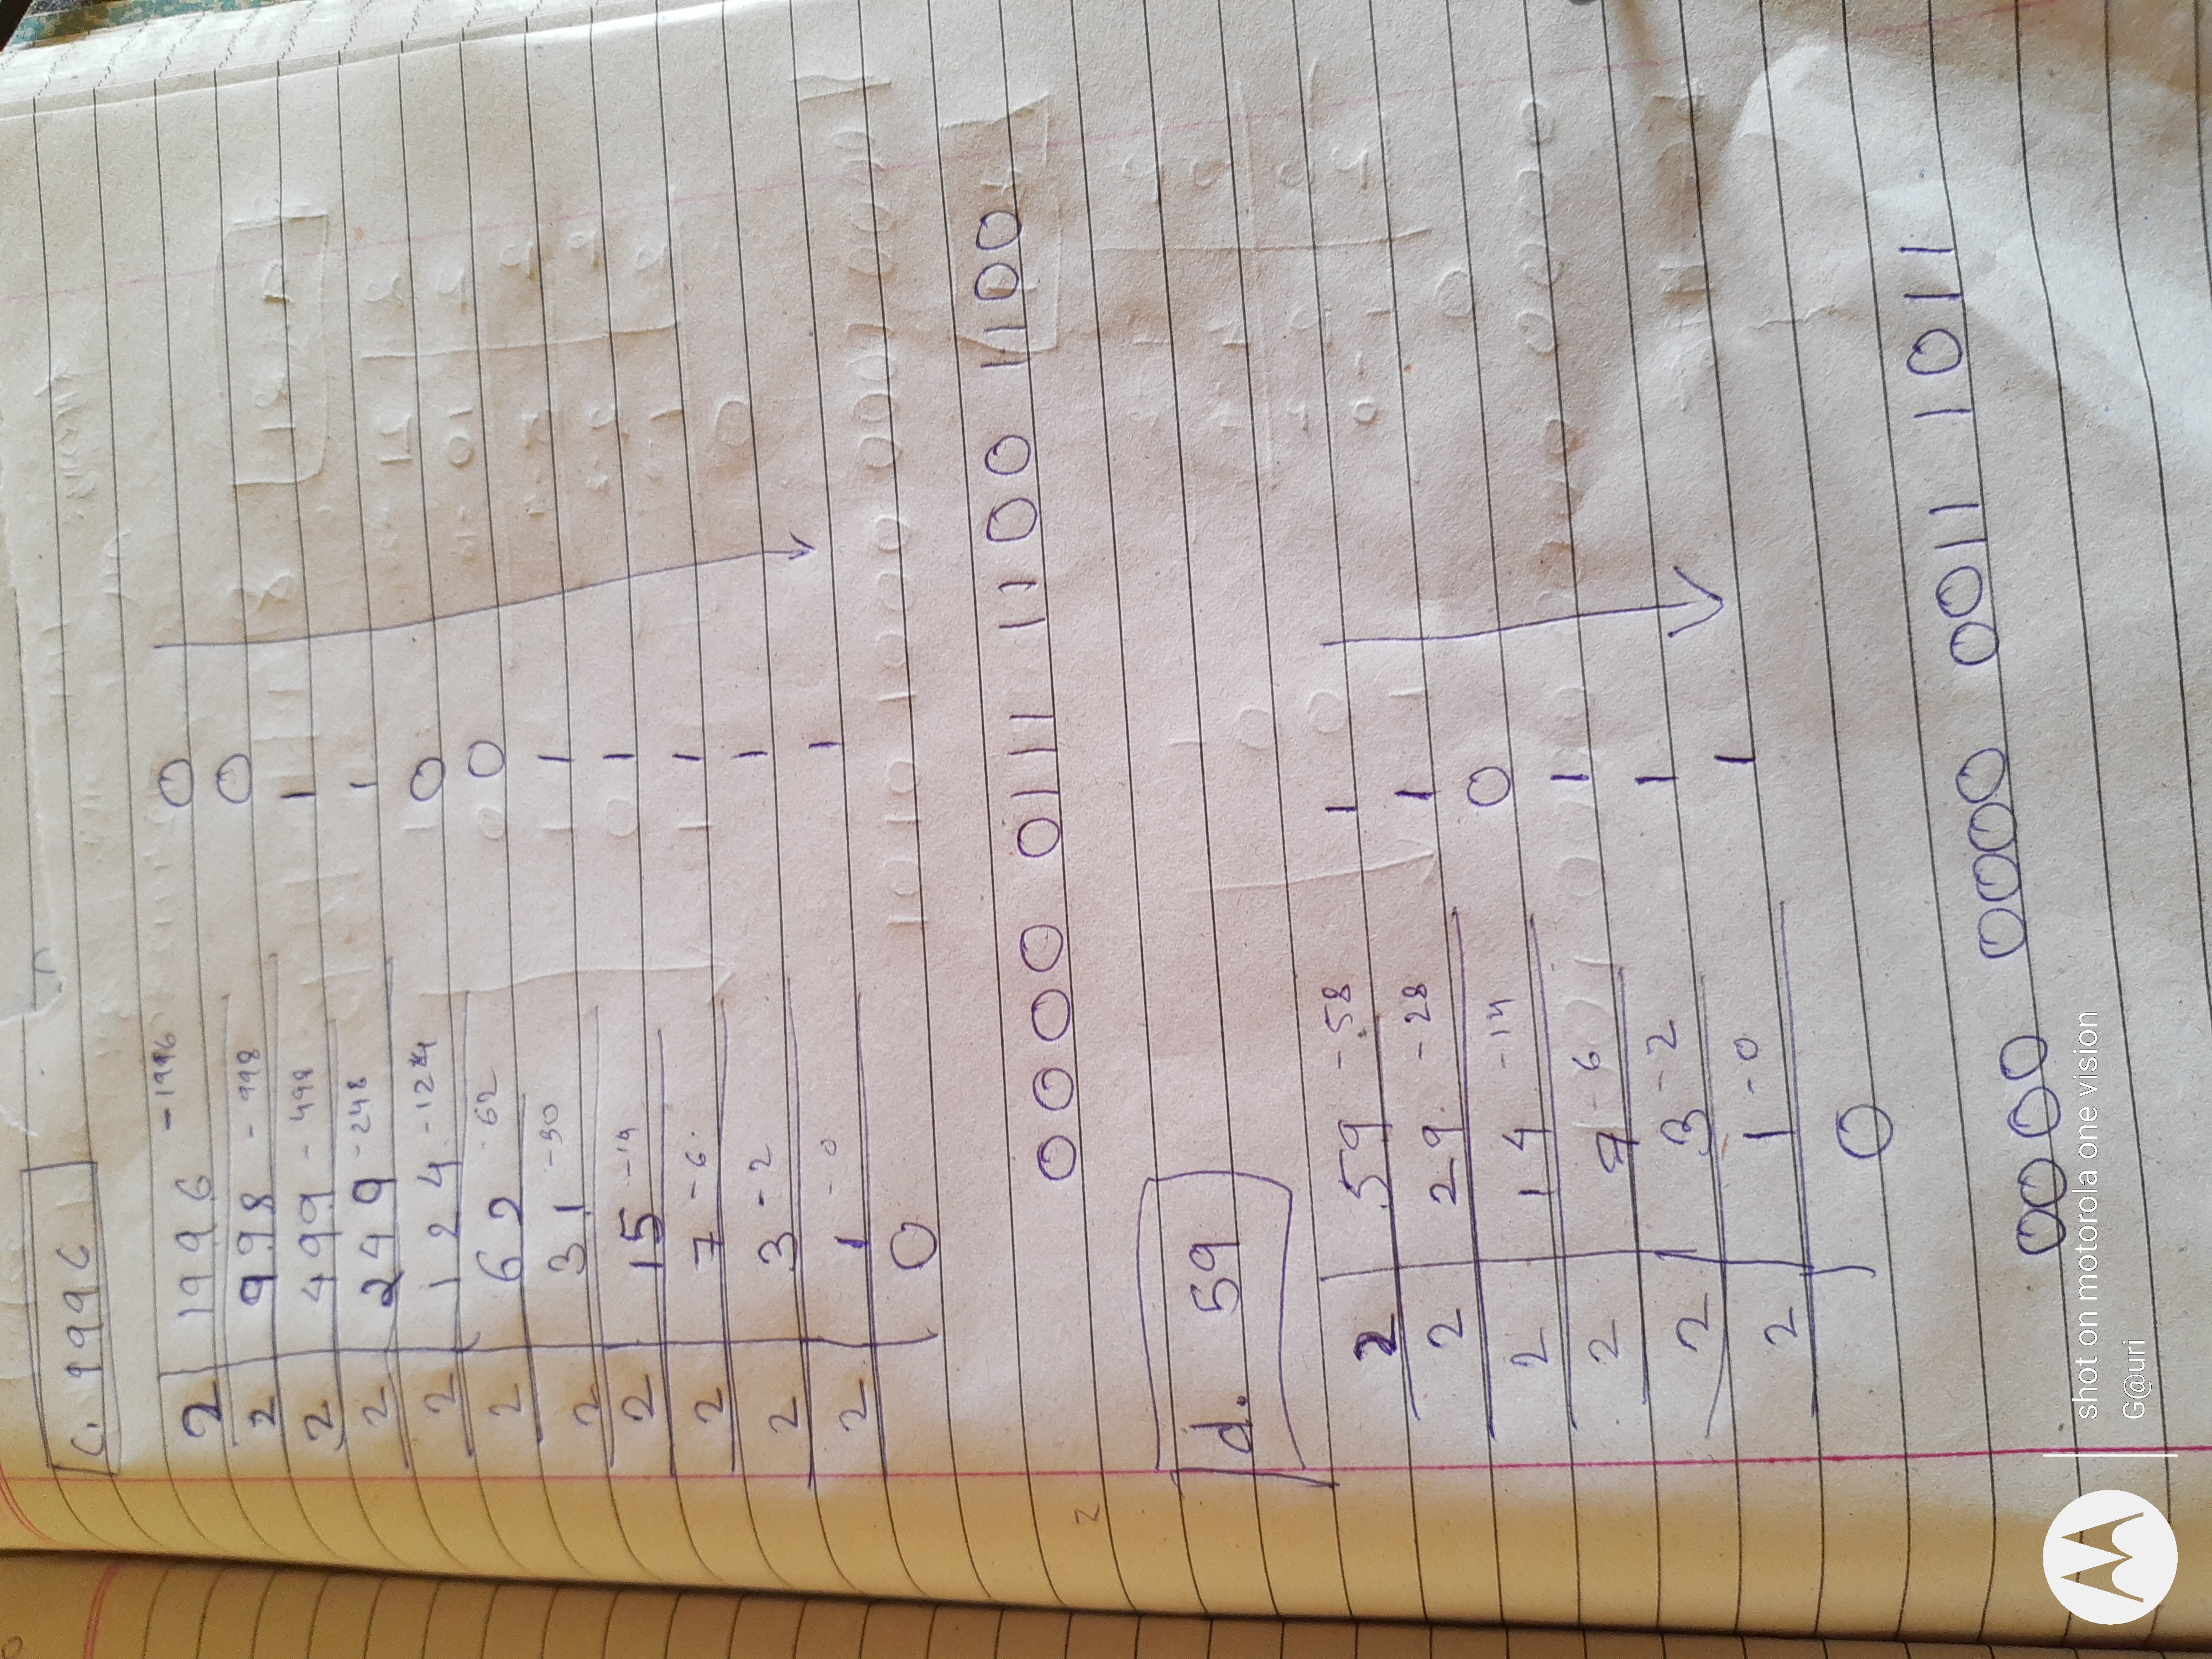 c. 1996
2 1996 -1996 0
2 998 -998 0
2 499 -498 1
2 249 -248 1
2 124 -124 0
2 62 -62 0
2 31 -30 1
2 15 -14 1
2 7 -6 1
2 3 -2 1
2 1 -0 1
0
0000 0111 1100 1100
2
d. 59
2 59 -58 1
2 29 -28 1
2 14 -14 0
2 7 -6 1
2 3 -2 1
2 1 -0 1
0
0000 0000 0011 1011
shot on motorola one vision
G@uri